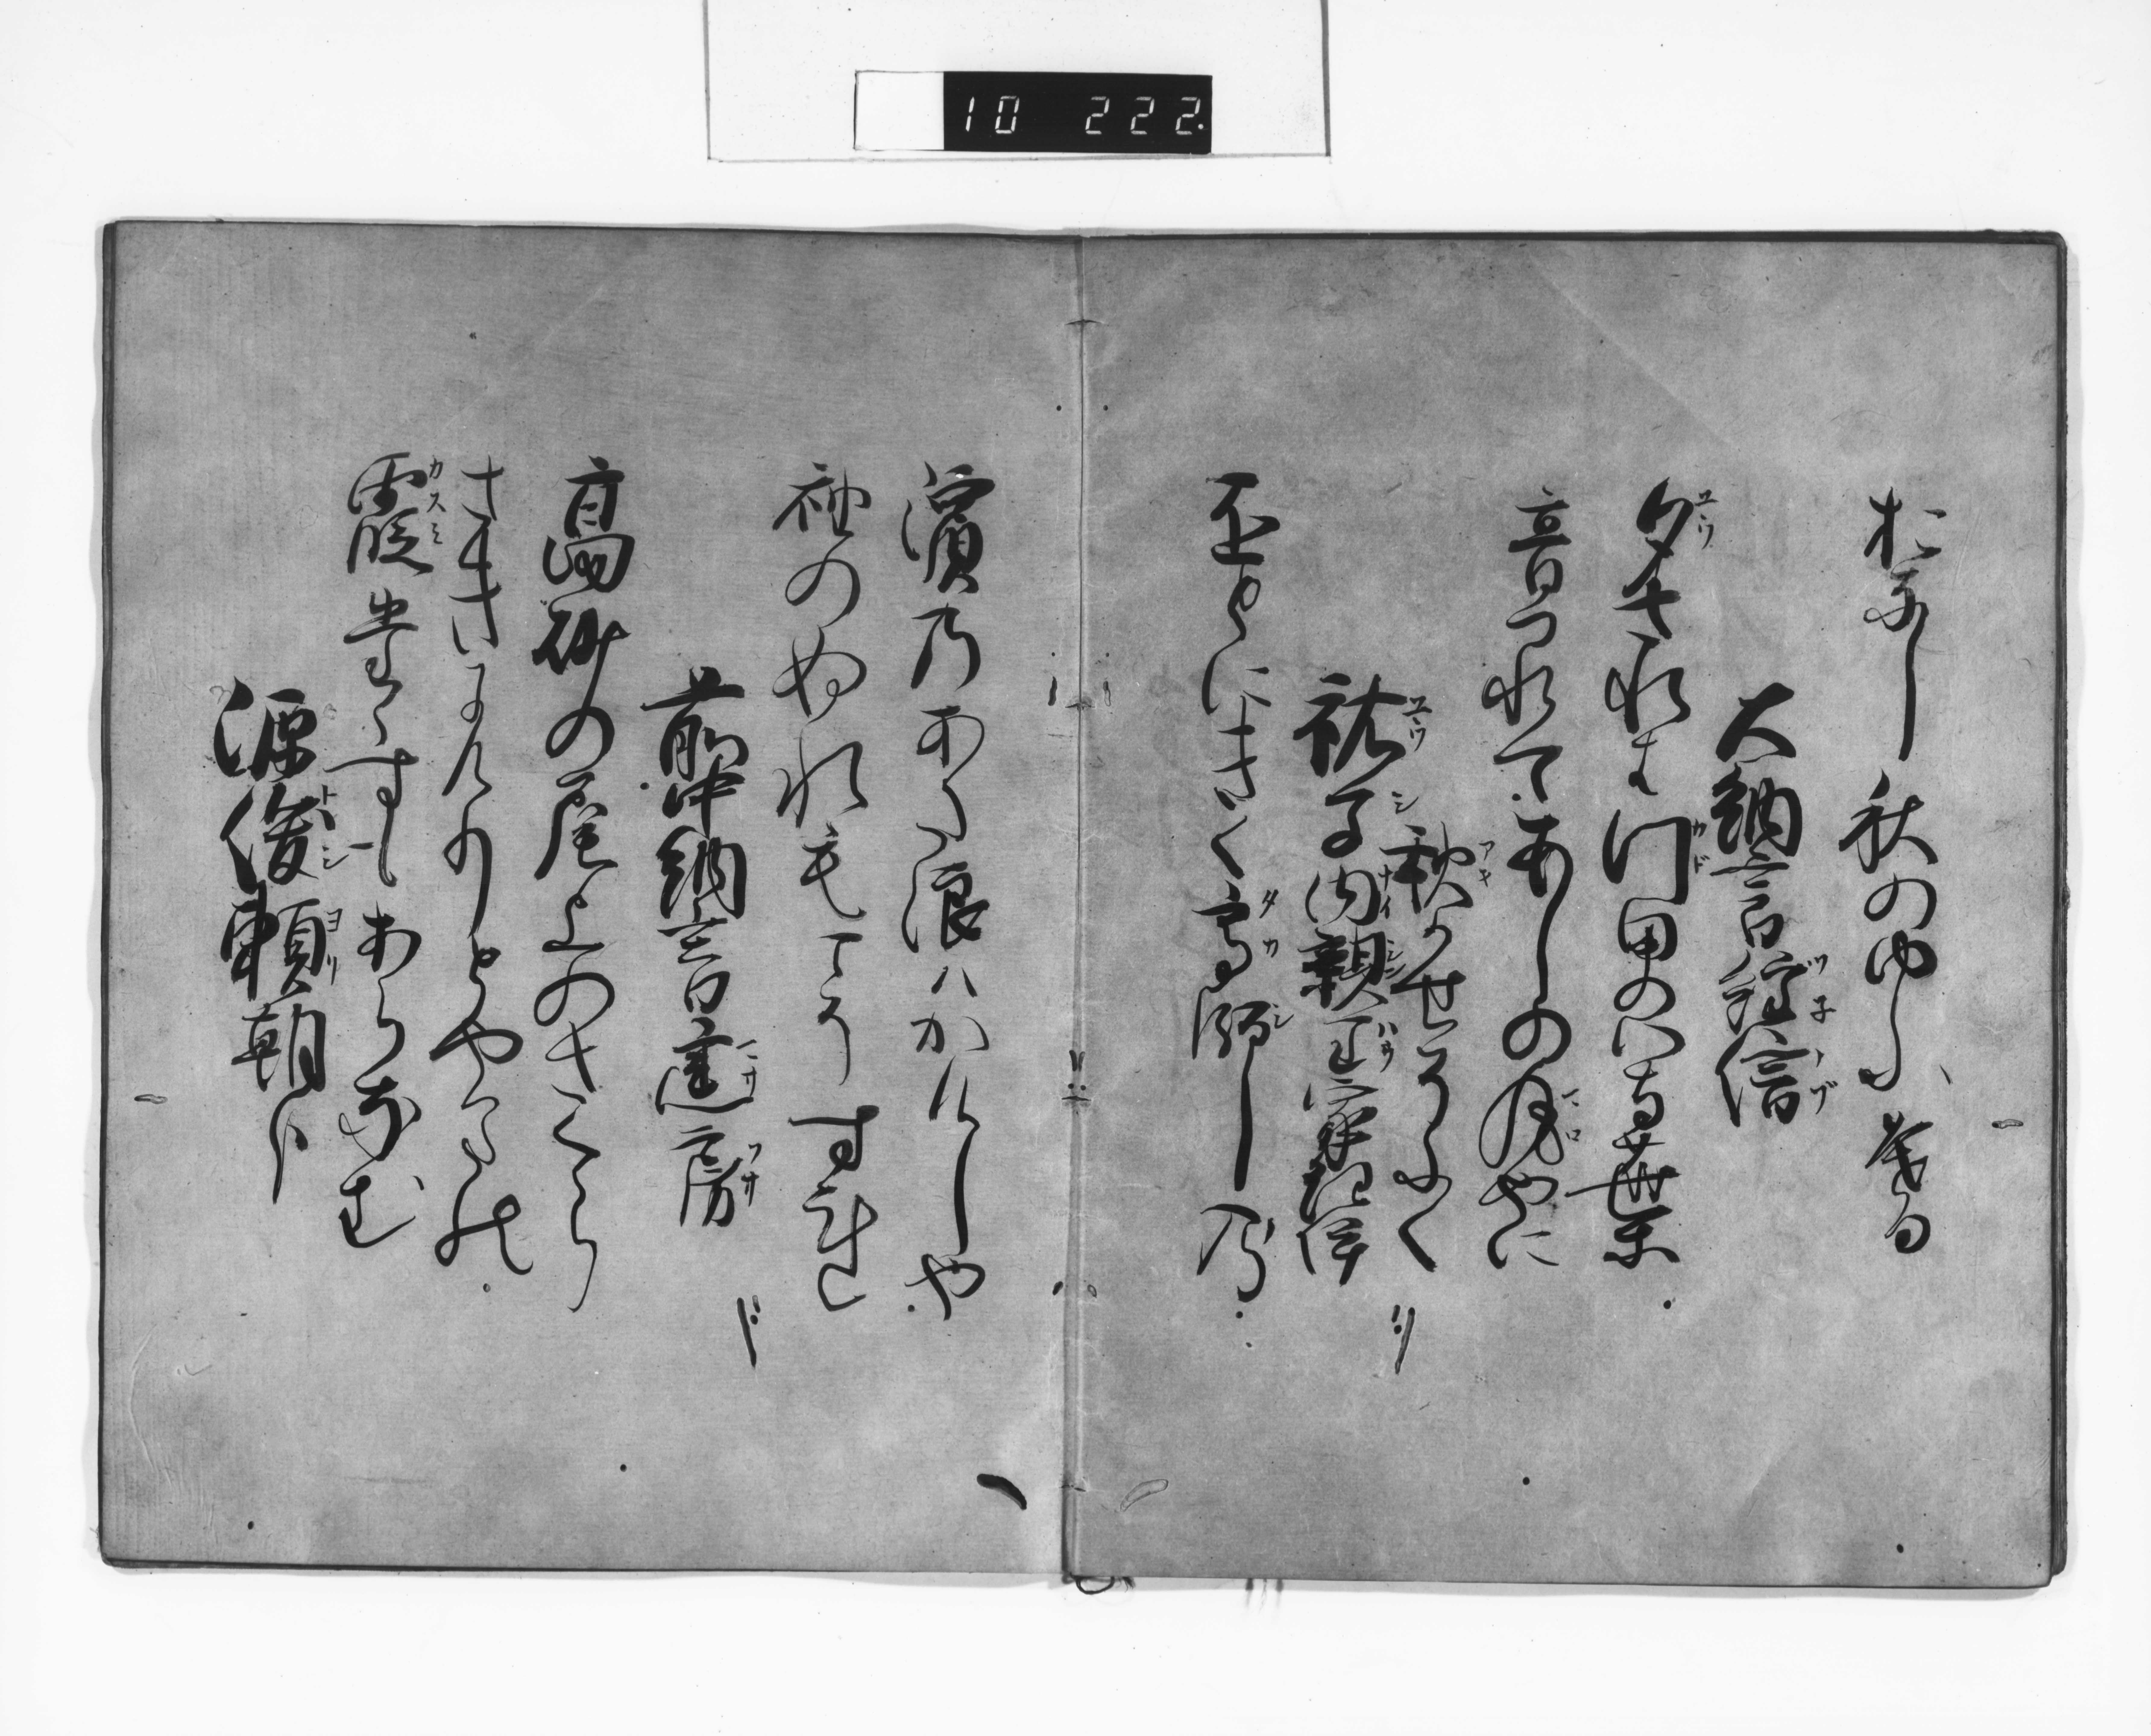 10 222
おなし秋のゆふ暮
大納言経信
夕されは門田のいな葉
音つれてあしの丸やに
秋かせそふく
祐子内親王家紀伊
音にきく高師の
濱乃あた浪ハかけしや
袖のぬれもこそすれ
前中納言匡房
高砂の尾上のさくら
さきにけりとやまの
霞たゝすもあらなむ
源俊頼朝臣